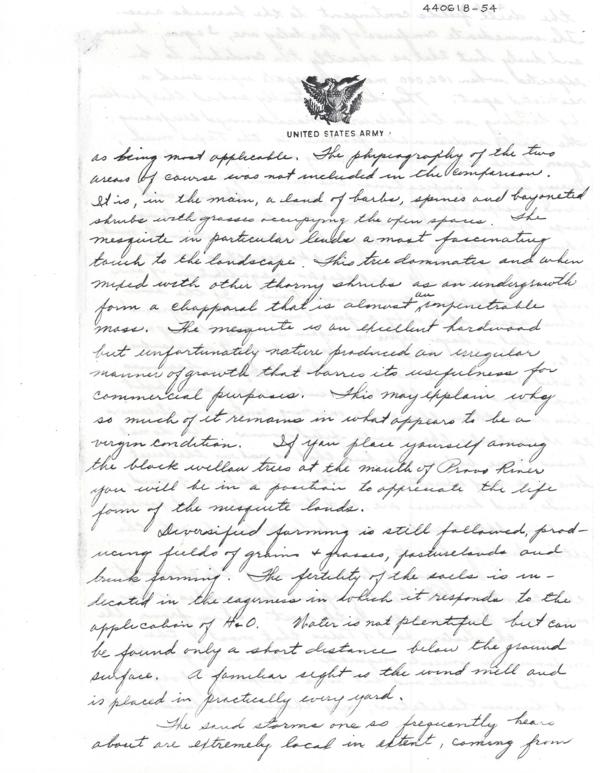 440618-54
UNITED STATES ARMY
as being most applicable. The physiography of the two
areas of course was not included in the comparison.
It is, in the main, a land of barbs, spines and bayoneted
shrubs with grasses occupying the open spaces. The
mesquite in particular lends a most fascinating
touch to the landscape. This tree dominates and when
mixed with other thorny shrubs as an undergrowth
form a chapparal that is almost an impenetrable
mass. The mesquite is an excellent hardwood
but unfortunately nature produced an irregular
manner of growth that barres its usefulness for
commercial purposes. This may explain why
so much of it remains in what appears to be a
virgin condition. If you place yourself among
the black willow trees at the mouth of Provo River
you will be in a position to appreciate the life
form of the mesquite lands.
Diversified farming is still followed, prod-
ucing fields of grains + grasses, pasturelands and
truck farming. The fertility of the soils is in-
dicated in the eagerness in which it responds to the
application of H2O. Water is not plentiful but can
be found only a short distance below the ground
surface. A familiar sight is the wind mill and
is placed in practically every yard.
The sand storms one so frequently hears
about are extremely local in extent, coming from